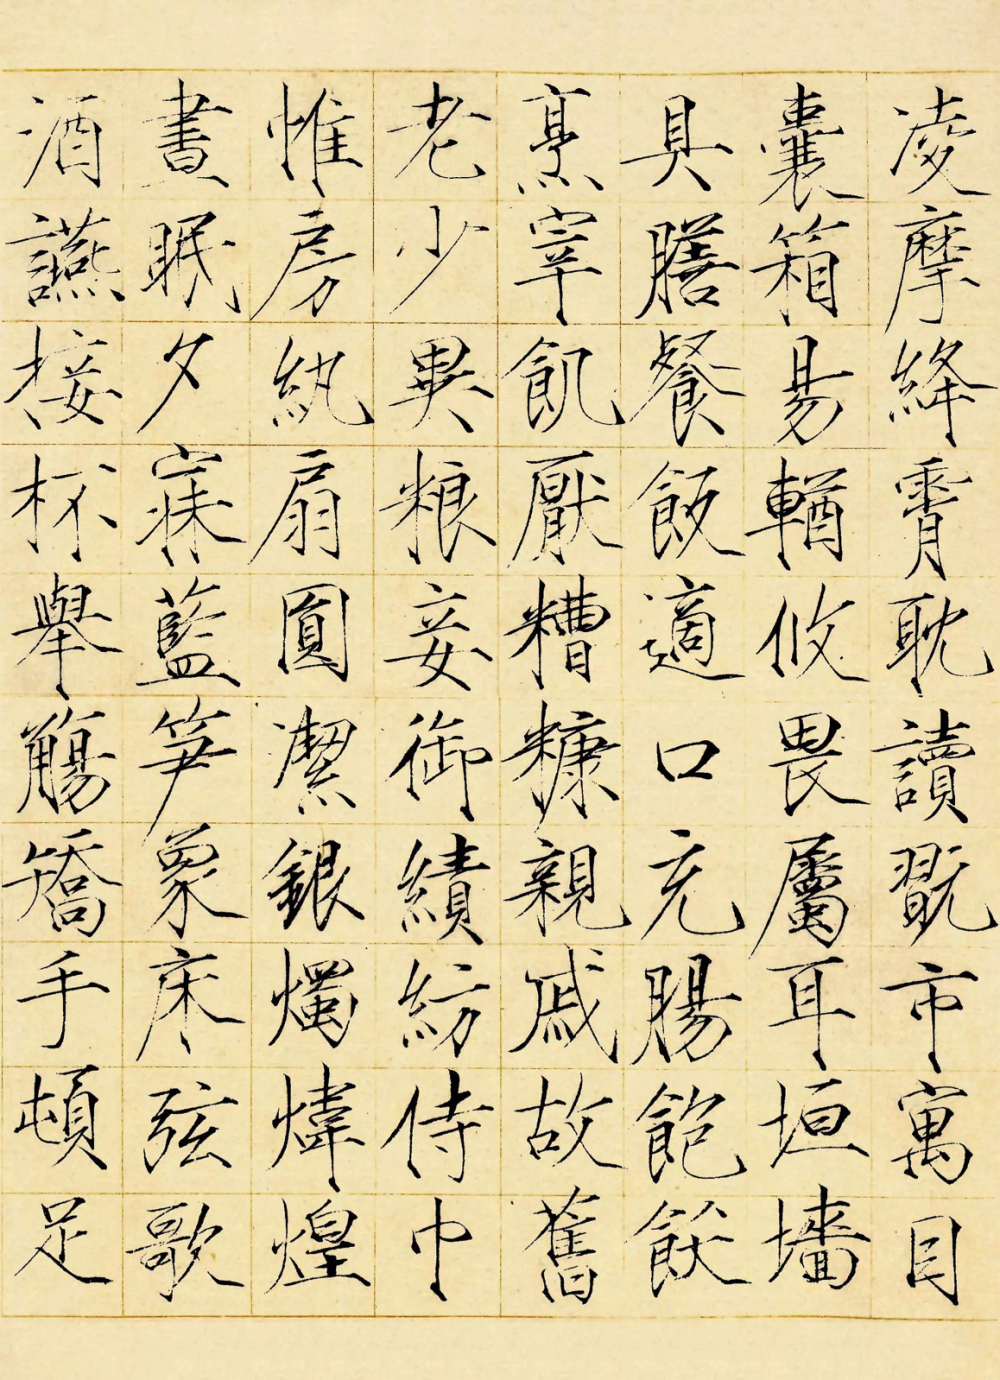 凌摩絳霄耽讀翫市寓目
囊箱易輶攸畏屬耳垣墻
具膳餐飯適口充腸飽飫
烹宰飢厭糟糠親戚故舊
老少異粮妾御績紡侍巾
帷房紈扇圓潔銀燭煒煌
晝眠夕寐藍笋象床弦歌
酒讌接杯舉觴矯手頓足